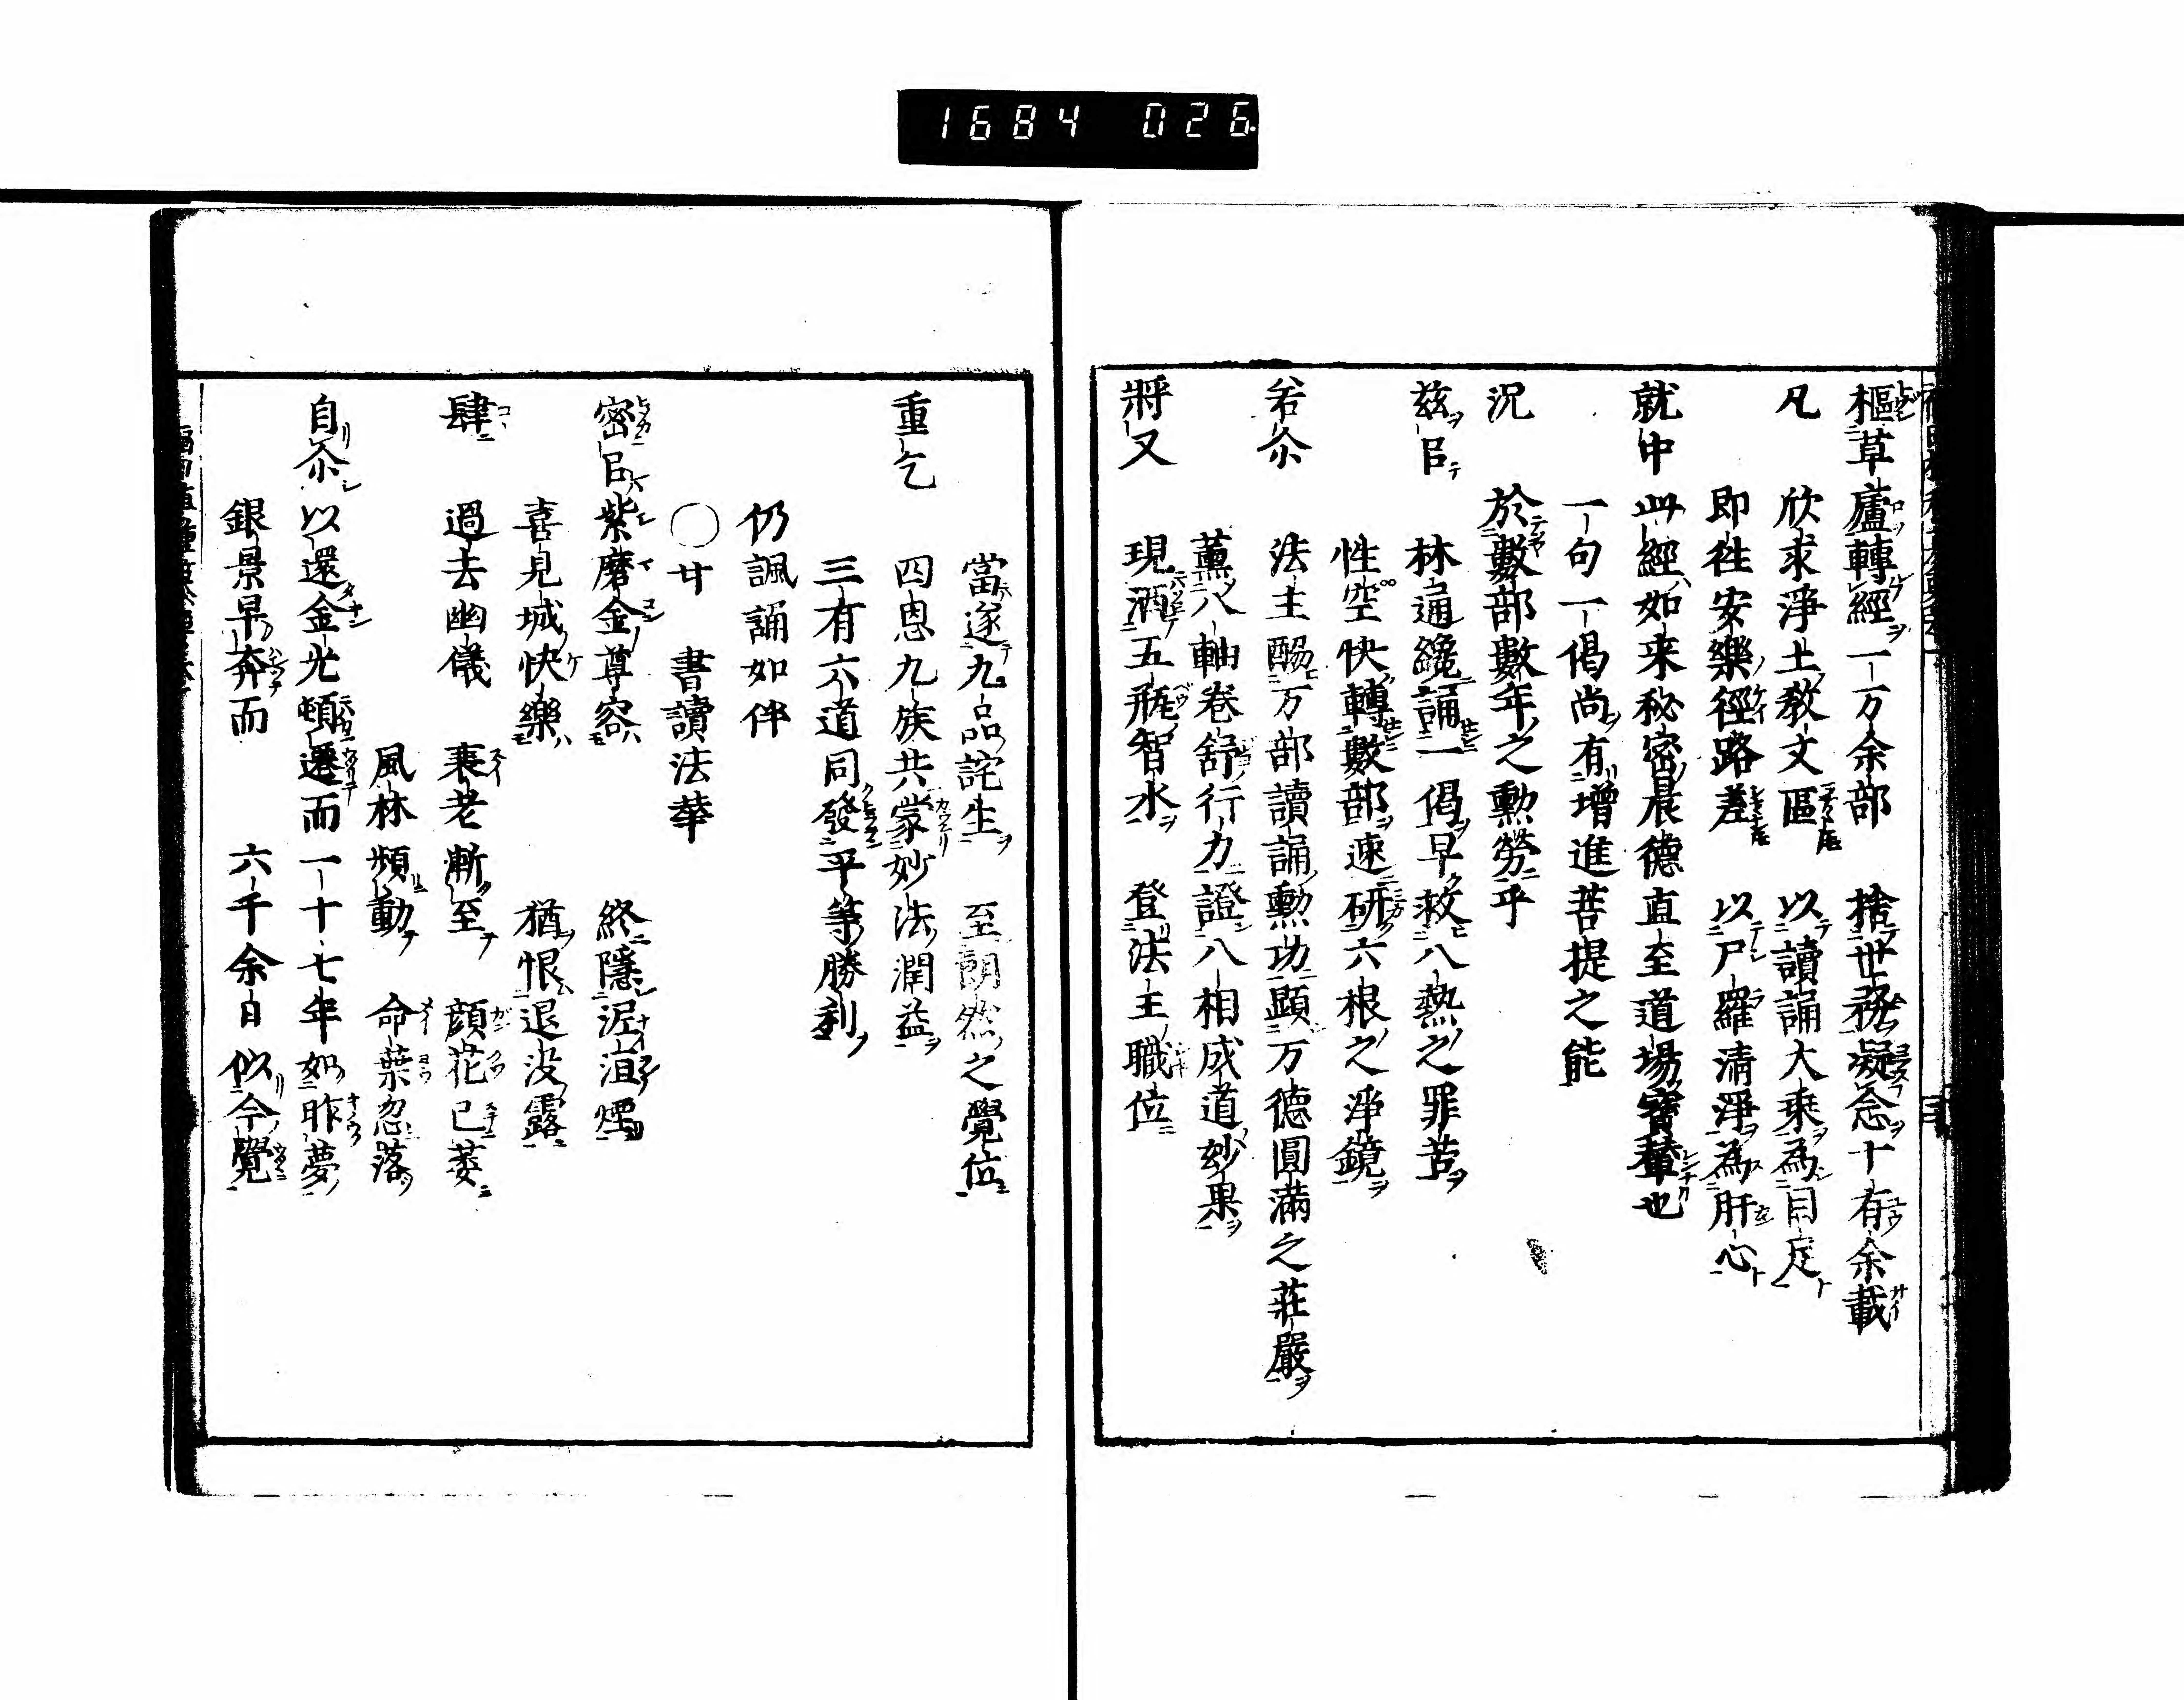 1684 026.
樞草廬轉經一万余部　捨世務凝念十有余載
凡　欣求淨土教文區　以讀誦大乘為目足
即徃安樂徑路差　以尸羅清淨為肝心
就中此經如来秘密晨德直至道場寳輦也
一句一偈尚有增進菩提之能
況　於數部數年之勲勞乎
茲㠯　林通纔誦一偈早救八熱之罪苦
性空快轉數部速研六根之淨鏡
若尒　法主酬万部讀誦勲功顕万德圓滿之荘嚴
薫八軸卷舒行力證八相成道妙果
將又　現洒五瓶智水　登法王職位
當遂九品詫生　至朗然之覺位
重乞　四恩九族共蒙妙法潤益
三有六道同發平等勝利
仍諷誦如件
〇廿　書讀法華
密㠯紫磨金尊容　終隱泥洹煙
喜見城快樂　猶恨退没露
肆　過去幽儀　衰老漸至　顔花已萎
風林頻動　命葉忽落
自尒　以還金光頓遷而　一十七年如昨夢
銀景早奔而　六千余日似今覺